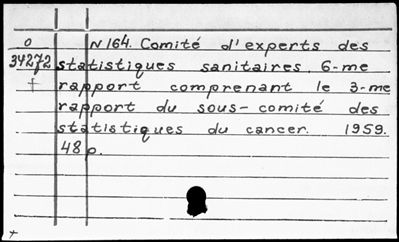 o N 164. Comité d'experts des
34272 statistiques sanitaires 6-me
† rapport comprenant le 3-me
rapport du sous-comité des
statistiques du cancer. 1959.
48 p.
+